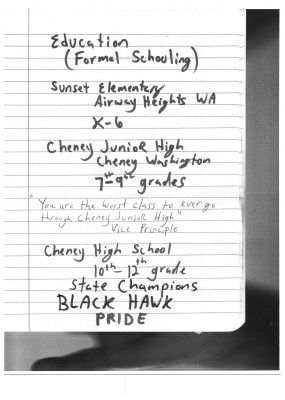 Education
(Formal Schooling)
Sunset Elementary
Airway Heights WA
K-6
Cheney Junior High
Cheney Washington
7th-9th grades
"You are the worst class to ever go
through Cheney Junior High"
Vice Principle
Cheney High School
10th-12th grade
State Champions
BLACK HAWK
PRIDE